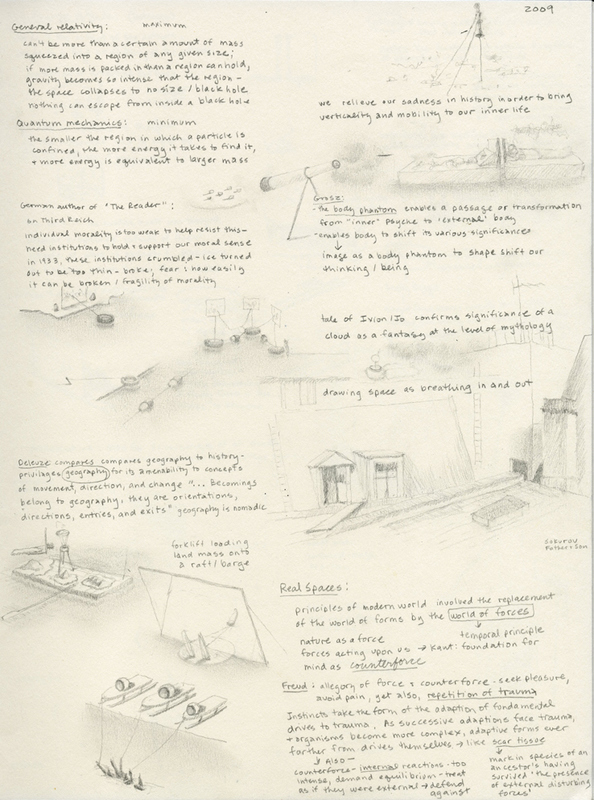 2009
General relativity: maximum
can't be more than a certain amount of mass
squeezed into a region of any given size;
if more mass is packed in than a region can hold,
gravity becomes so intense that the region -
the space collapses to no size / black hole
nothing can escape from inside a black hole
Quantum mechanics: minimum
the smaller the region in which a particle is
confined, the more energy it takes to find it,
+ more energy is equivalent to larger mass
we relieve our sadness in history in order to bring
verticality and mobility to our inner life
German author of "The Reader":
on Third Reich
individual morality is too weak to help resist this -
need institutions to hold + support our moral sense
in 1933, these institutions crumbled - ice turned
out to be too thin - broke; fear: how easily
it can be broken / fragility of morality
Grosz:
- the body phantom enables a passage or transformation
from "inner" psyche to 'external' body
- enables body to shift its various significances
image as a body phantom to shape shift our
thinking / being
tale of Ixion/Io confirms significance of a
cloud as a fantasy at the level of mythology
drawing space as breathing in and out
Deleuze compares compares geography to history -
privileges geography for its amenability to concepts
of movement, direction, and change "... Becomings
belong to geography, they are orientations,
directions, entries, and exits" geography is nomadic
forklift loading
land mass onto
a raft / barge
Sokurov
Father + Son
Real Spaces:
principles of modern world involved the replacement
of the world of forms by the world of forces
temporal principle
nature as a force
forces acting upon us → Kant: foundation for
mind as counterforce
Freud: allegory of force + counterforce - seek pleasure,
avoid pain, yet also, repetition of trauma
Instincts take the form of the adaption of fundamental
drives to trauma. As successive adaptions face trauma,
+ organisms become more complex, adaptive forms ever
farther from drives themselves → like scar tissue
Also -
counterforce - internal reactions - too
intense, demand equilibrium - treat
as if they were external → defend
against
mark in species of an
ancestor's having
survived 'the presence
of external disturbing
forces'